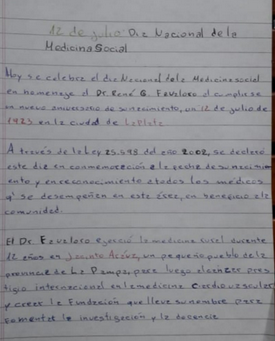 12 de julio Dia Nacional de la
Medicina Social
Hoy se celebra el dia Nacional de la Medicina social
en homenaje al Dr. René G. Favaloro al cumplirse
un nuevo aniversario de su nacimiento, un 12 de julio de
1923 en la ciudad de La Plata
A través de la Ley 25.598 del año 2002, se declaró
este dia en conmemoración a la fecha de su nacimi
ento y en reconocimiento a todos los médicos
q' se desempeñan en esta área, en beneficio a la
comunidad.
El Dr. Favaloro ejerció la medicina rural durante
12 años en Jacinto Aráuz, un pequeño pueblo de la
provincia de La Pampa, para luego alcanzar pres
tigio internacional en la medicina cardiovascular
y crear la Fundación que lleva su nombre para
fomentar la investigación y la docencia